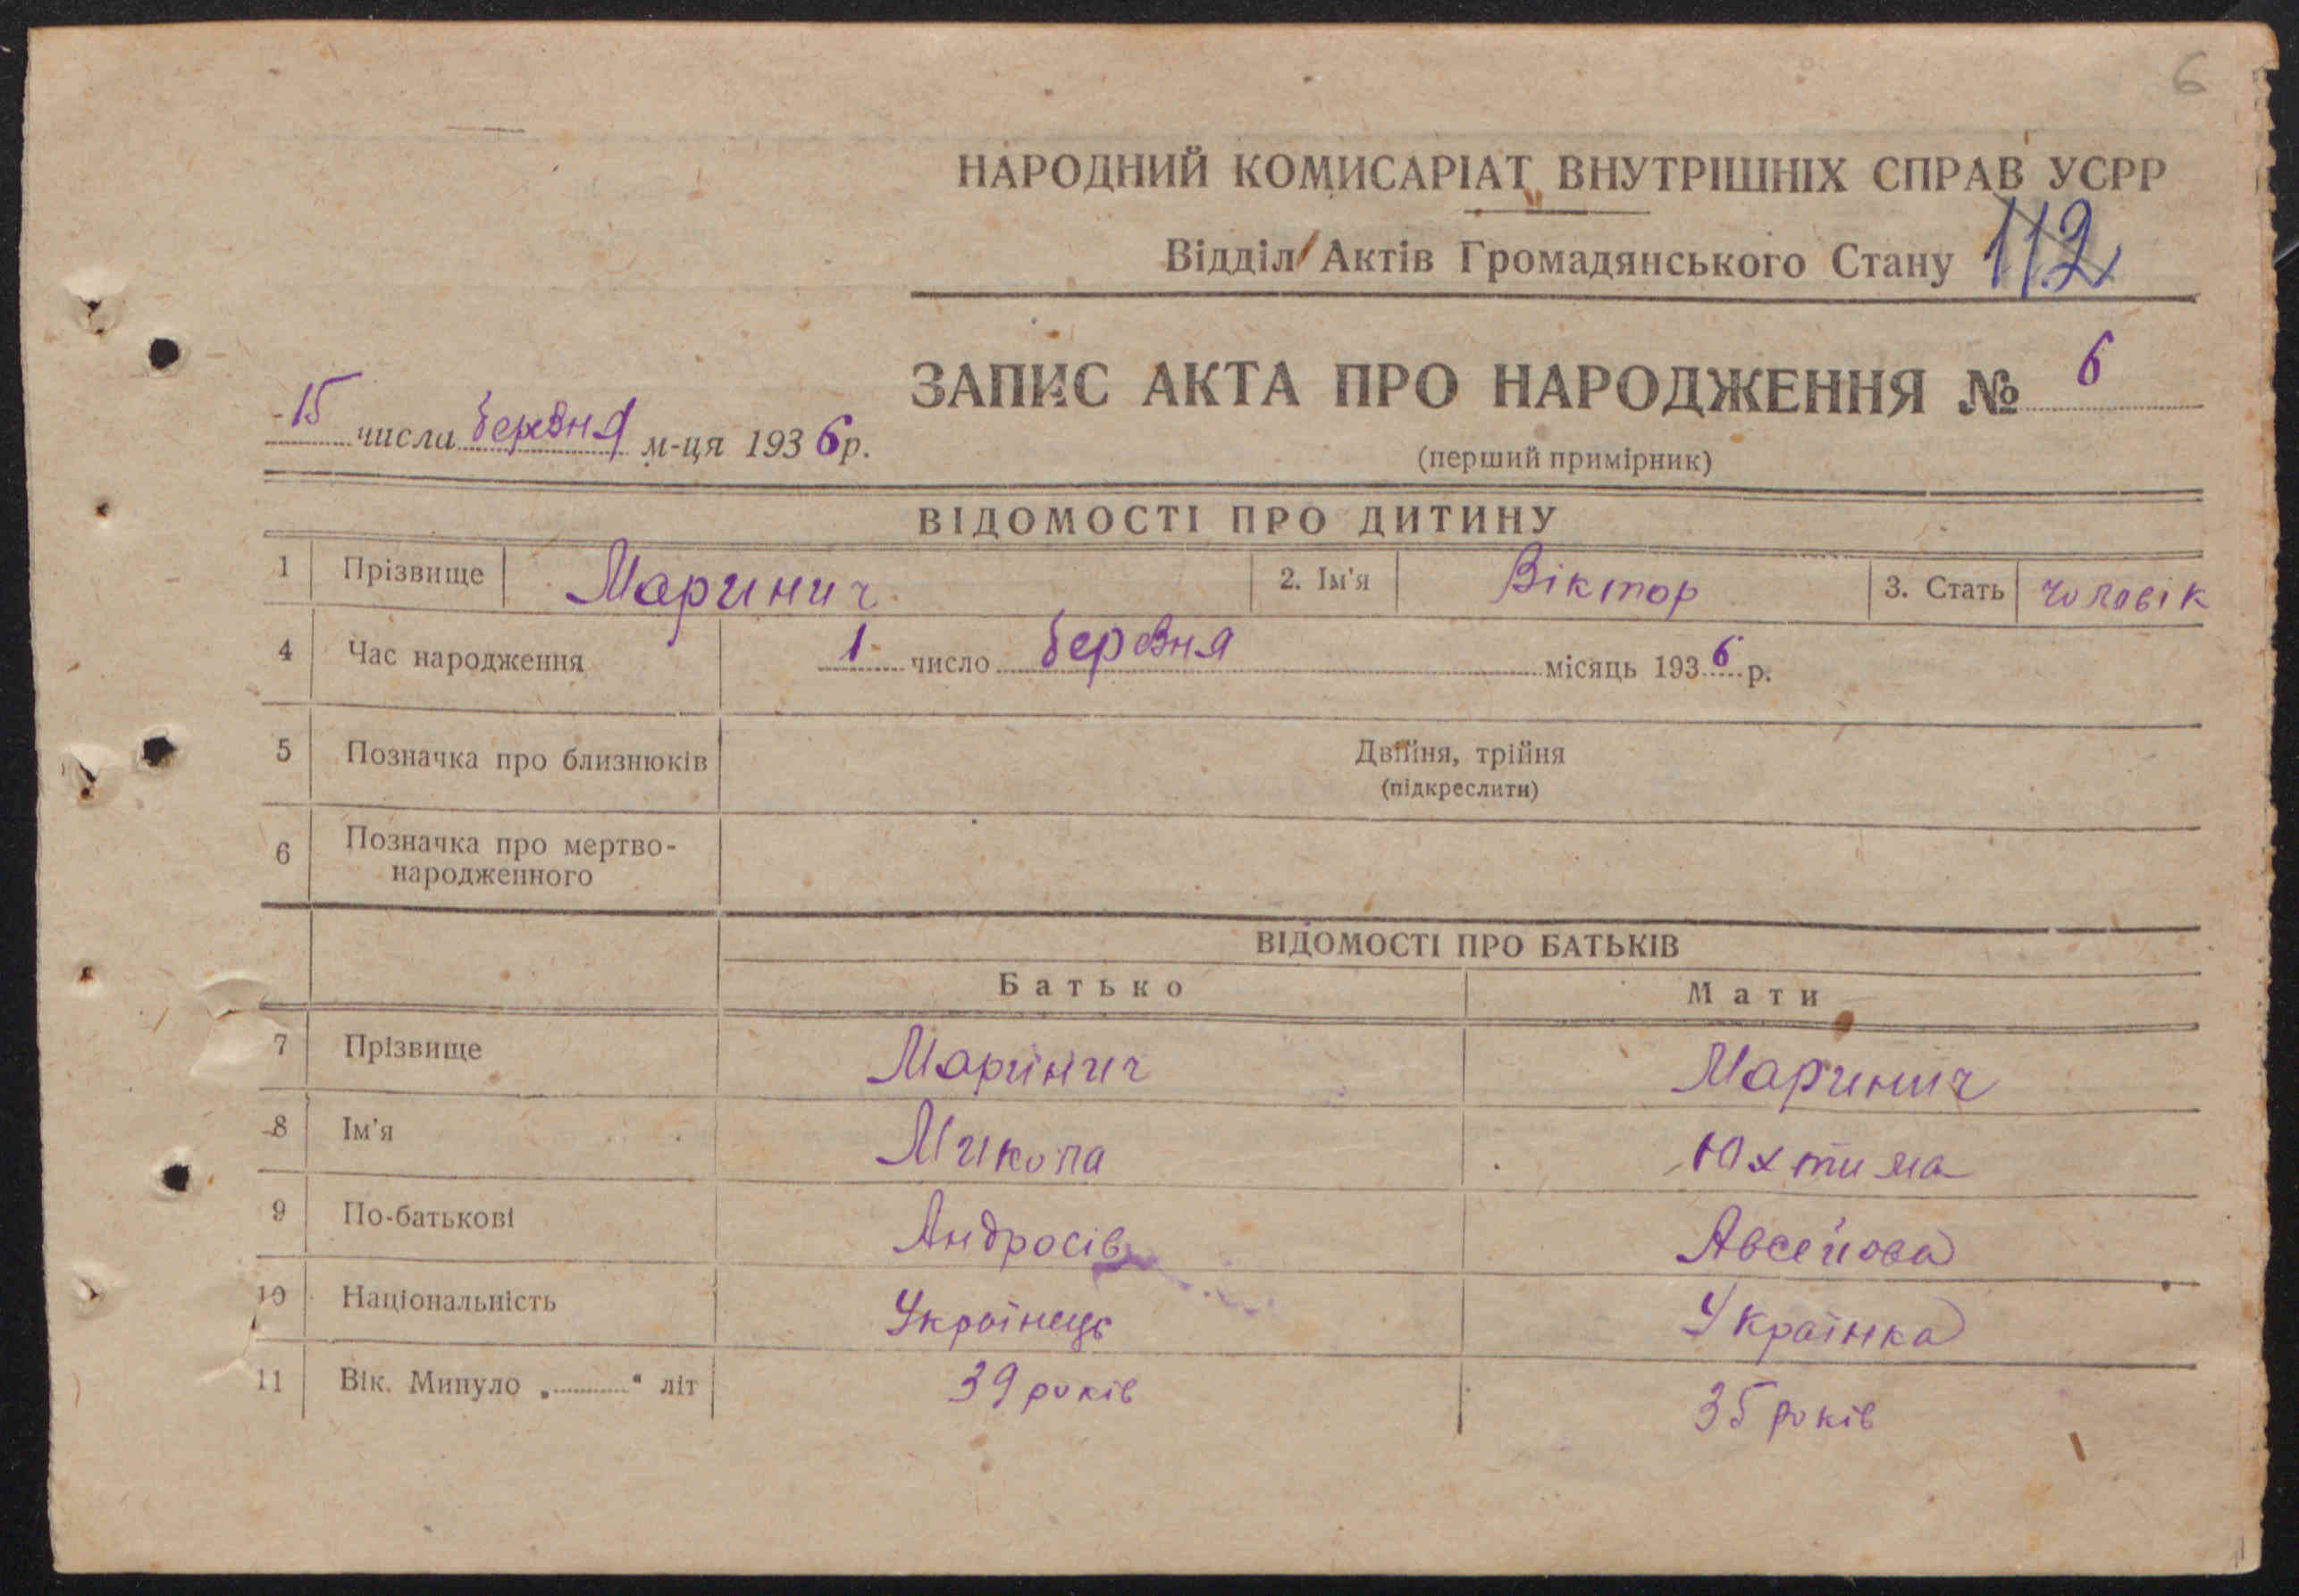 6
НАРОДНИЙ КОМИСАРІАТ ВНУТРІШНІХ СПРАВ УСРР
Відділ Актів Громадянського Стану 112
ЗАПИС АКТА ПРО НАРОДЖЕННЯ № 6
15 числа березня м-ця 1936 р.
(перший примірник)
ВІДОМОСТІ ПРО ДИТИНУ
1 Прізвище Маринич 2. Ім'я Віктор 3. Стать чоловік
4 Час народження 1 число березня місяць 1936 р.
5 Позначка про близнюків Двійня, трійня
(підкреслити)
6 Позначка про мертво-
народженного
ВІДОМОСТІ ПРО БАТЬКІВ
Батько Мати
7 Прізвище Маринич Маринич
8 Ім'я Микола Юхтима
9 По-батькові Андросів Авсейова
10 Національність Українець Українка
11 Вік. Минуло „ “ літ 39 років 35 років